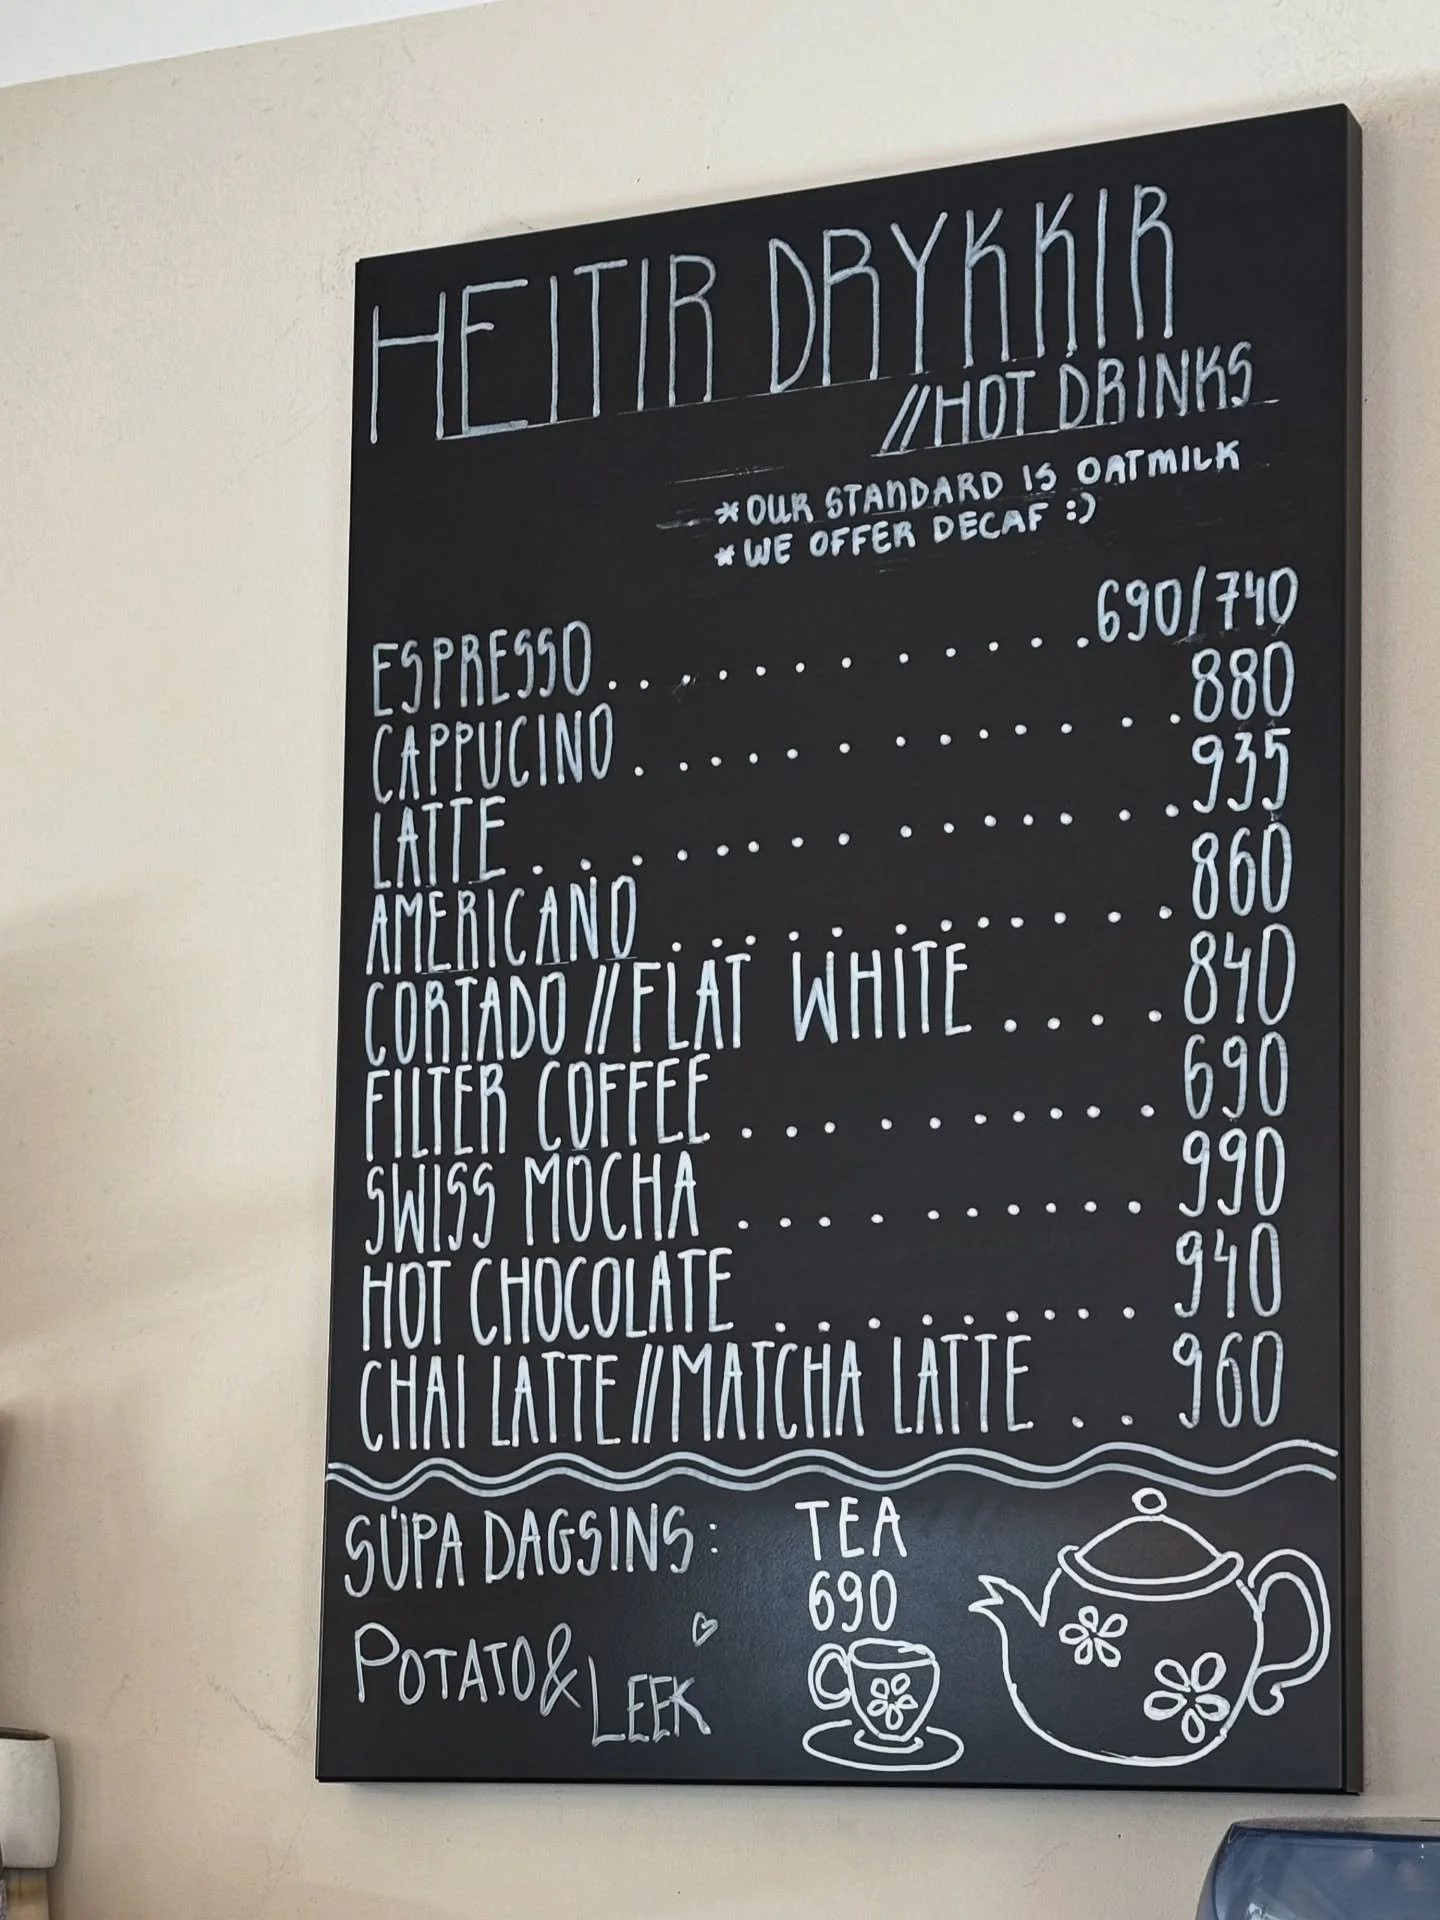 HEITIR DRYKKIR
//HOT DRINKS
*OUR STANDARD IS OATMILK
*WE OFFER DECAF :)
ESPRESSO.............690/740
CAPPUCINO.............880
LATTE...............935
AMERICANO............860
CORTADO//FLAT WHITE....840
FILTER COFFEE..........690
SWISS MOCHA..........990
HOT CHOCOLATE.........940
CHAI LATTE//MATCHA LATTE..960
SÚPA DAGSINS:
POTATO & LEEK
TEA
690